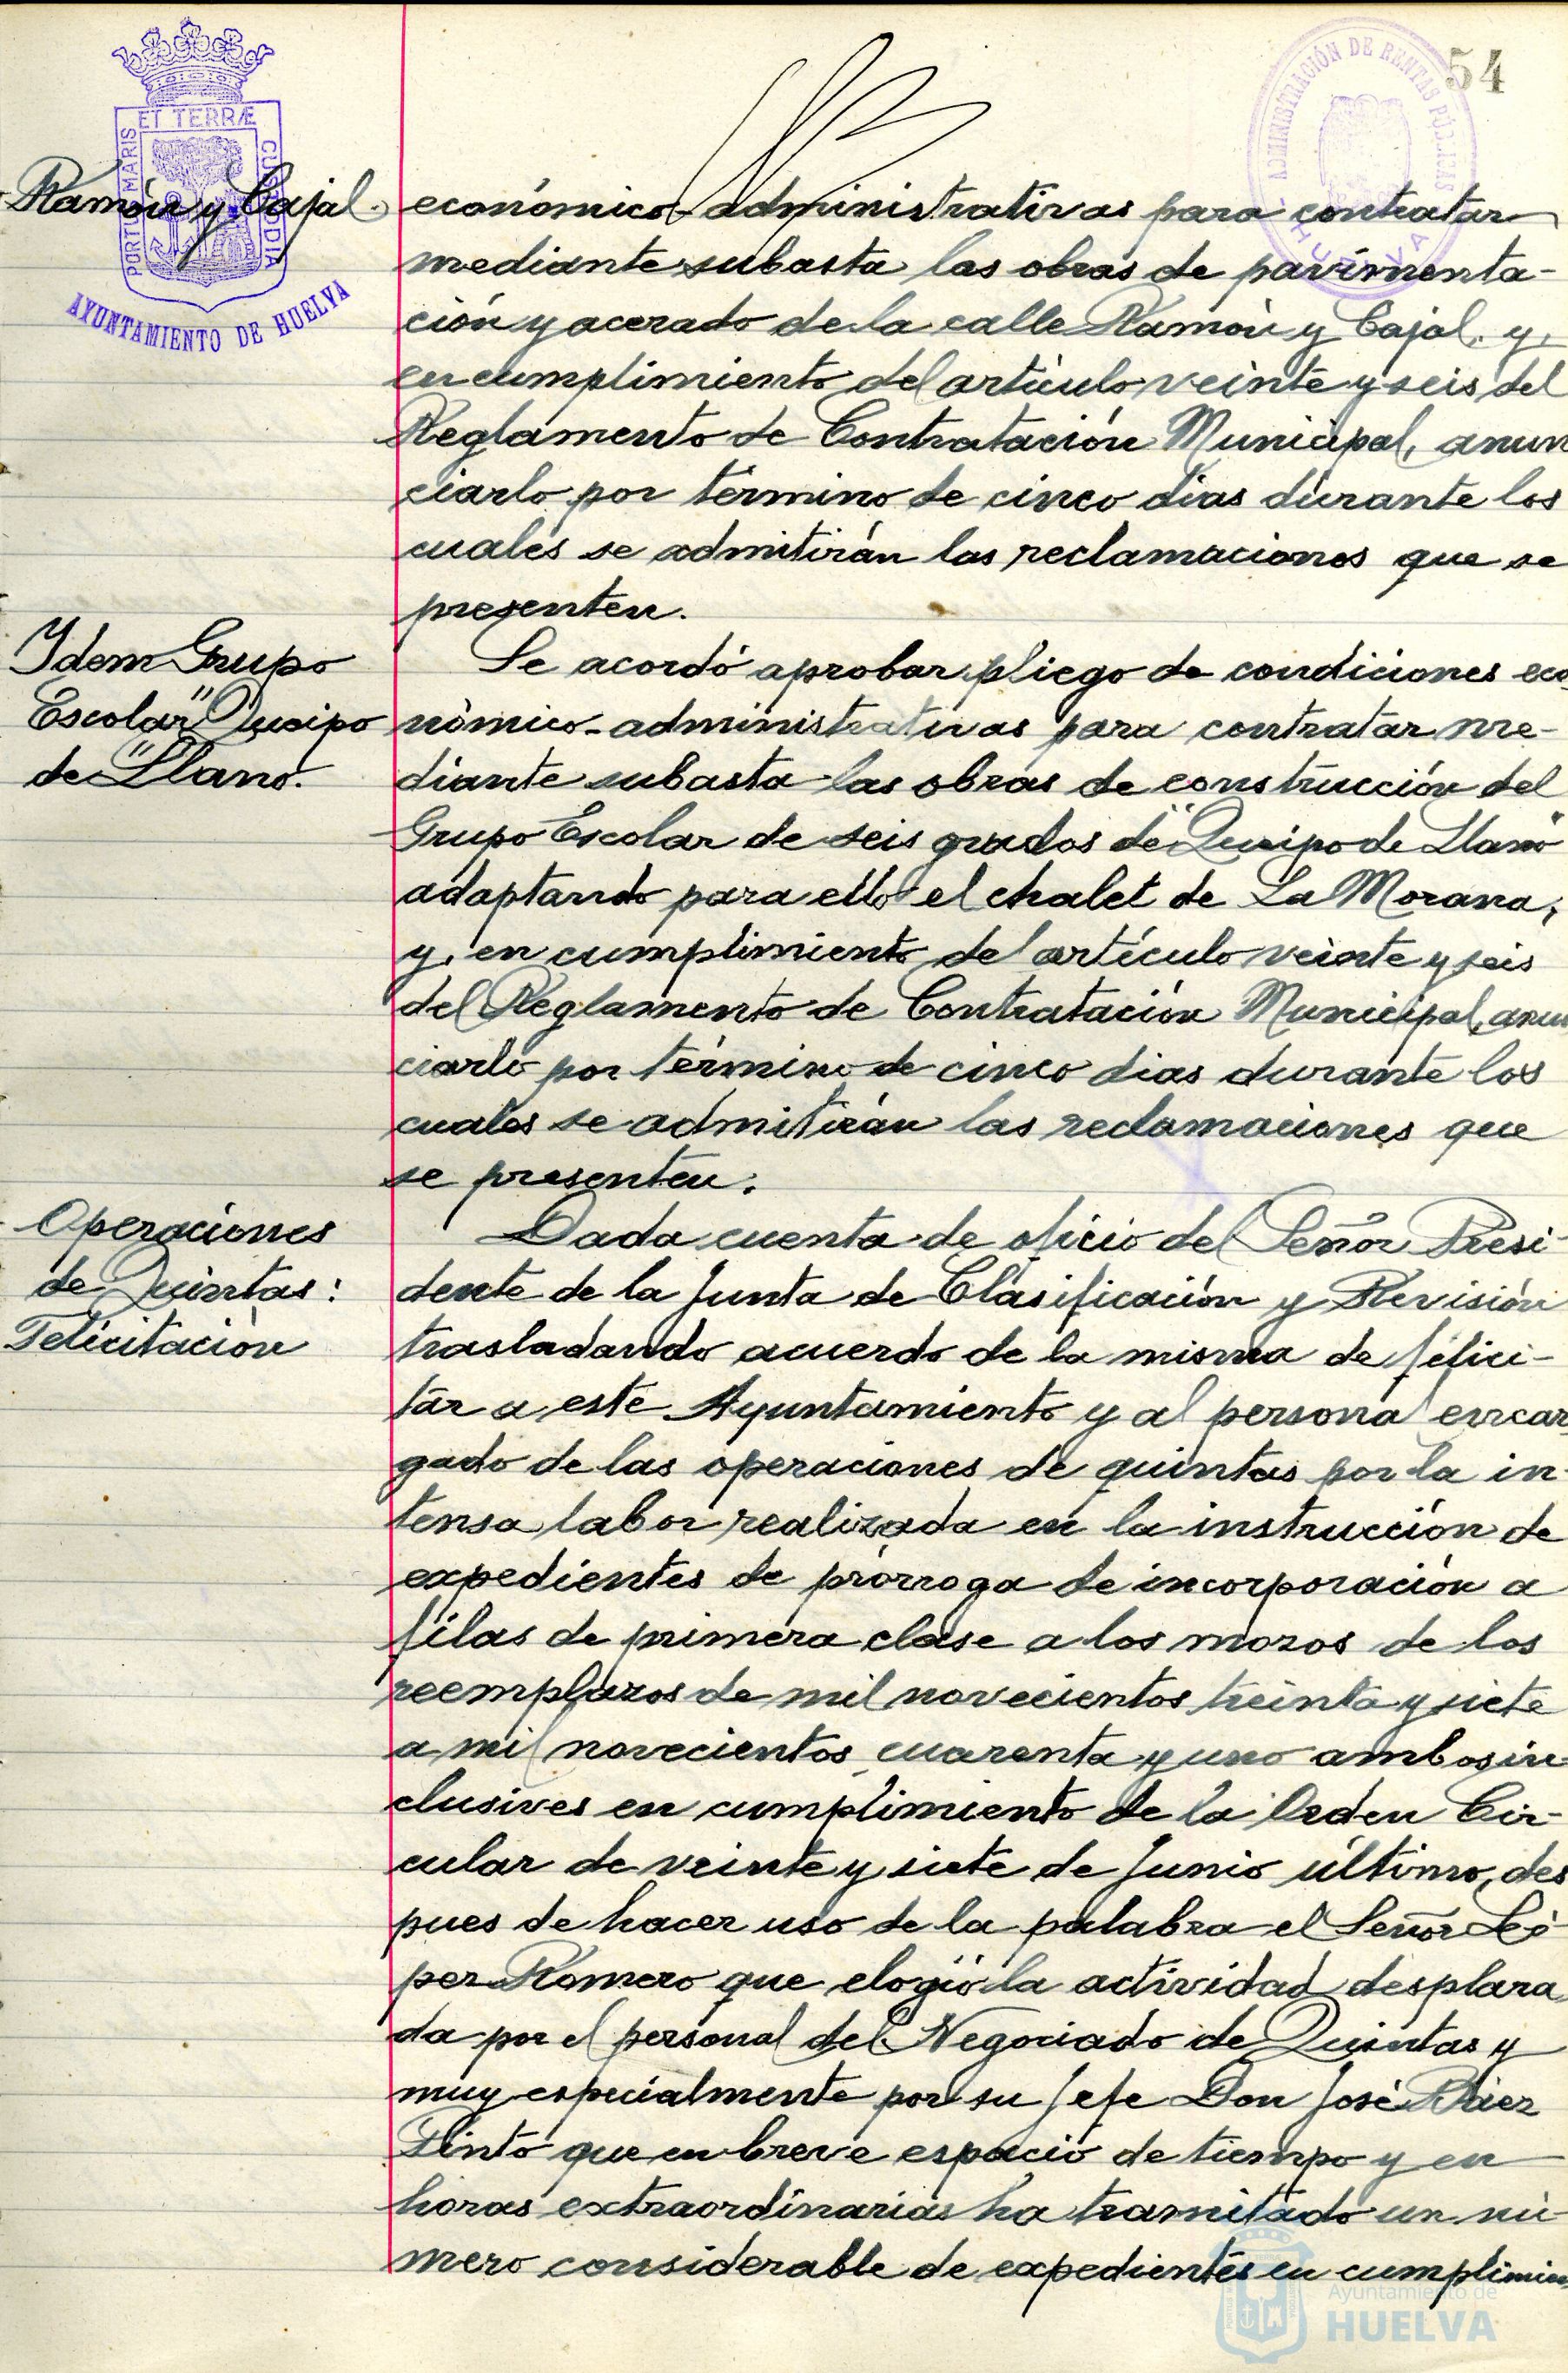 54
ADMINISTRACIÓN DE RENTAS PÚBLICAS
HUELVA
PORTUS MARIS ET TERRÆ CUSTODIA
AYUNTAMIENTO DE HUELVA
Ramón y Cajal.
económico-administrativas para contratar
mediante subasta las obras de pavimenta-
ción y acerado de la calle Ramón y Cajal, y,
en cumplimiento del artículo veinte y seis del
Reglamento de Contratación Municipal, anun
ciarlo por término de cinco dias durante los
cuales se admitirán las reclamaciones que se
presenten.
Idem Grupo
Escolar "Queipo
de Llano".
Se acordó aprobar pliego de condiciones eco
nómico-administrativas para contratar me-
diante subasta las obras de construcción del
Grupo Escolar de seis grados de "Queipo de Llano"
adaptando para ello el chalet de La Morana,
y, en cumplimiento del artículo veinte y seis
del Reglamento de Contratación Municipal, anun
ciarlo por término de cinco dias durante los
cuales se admitirán las reclamaciones que
se presenten.
Operaciones
de Quintas:
Felicitación
Dada cuenta de oficio del Señor Presi-
dente de la Junta de Clasificación y Revisión
trasladando acuerdo de la misma de felici-
tar a este Ayuntamiento y al personal encar
gado de las operaciones de quintas por la in-
tensa labor realizada en la instrucción de
expedientes de prórroga de incorporación a
filas de primera clase a los mozos de los
reemplazos de mil novecientos treinta y siete
a mil novecientos cuarenta y uno ambos in
clusives en cumplimiento de la Orden Cir-
cular de veinte y siete de Junio último, des
pues de hacer uso de la palabra el Señor Ló-
pez Romero que elogió la actividad desplaza
da por el personal del Negociado de Quintas y
muy especialmente por su Jefe Don José Báez
Pinto que en breve espacio de tiempo y en
horas extraordinarias ha tramitado un nú
mero considerable de expedientes en cumplimien
Ayuntamiento de
HUELVA